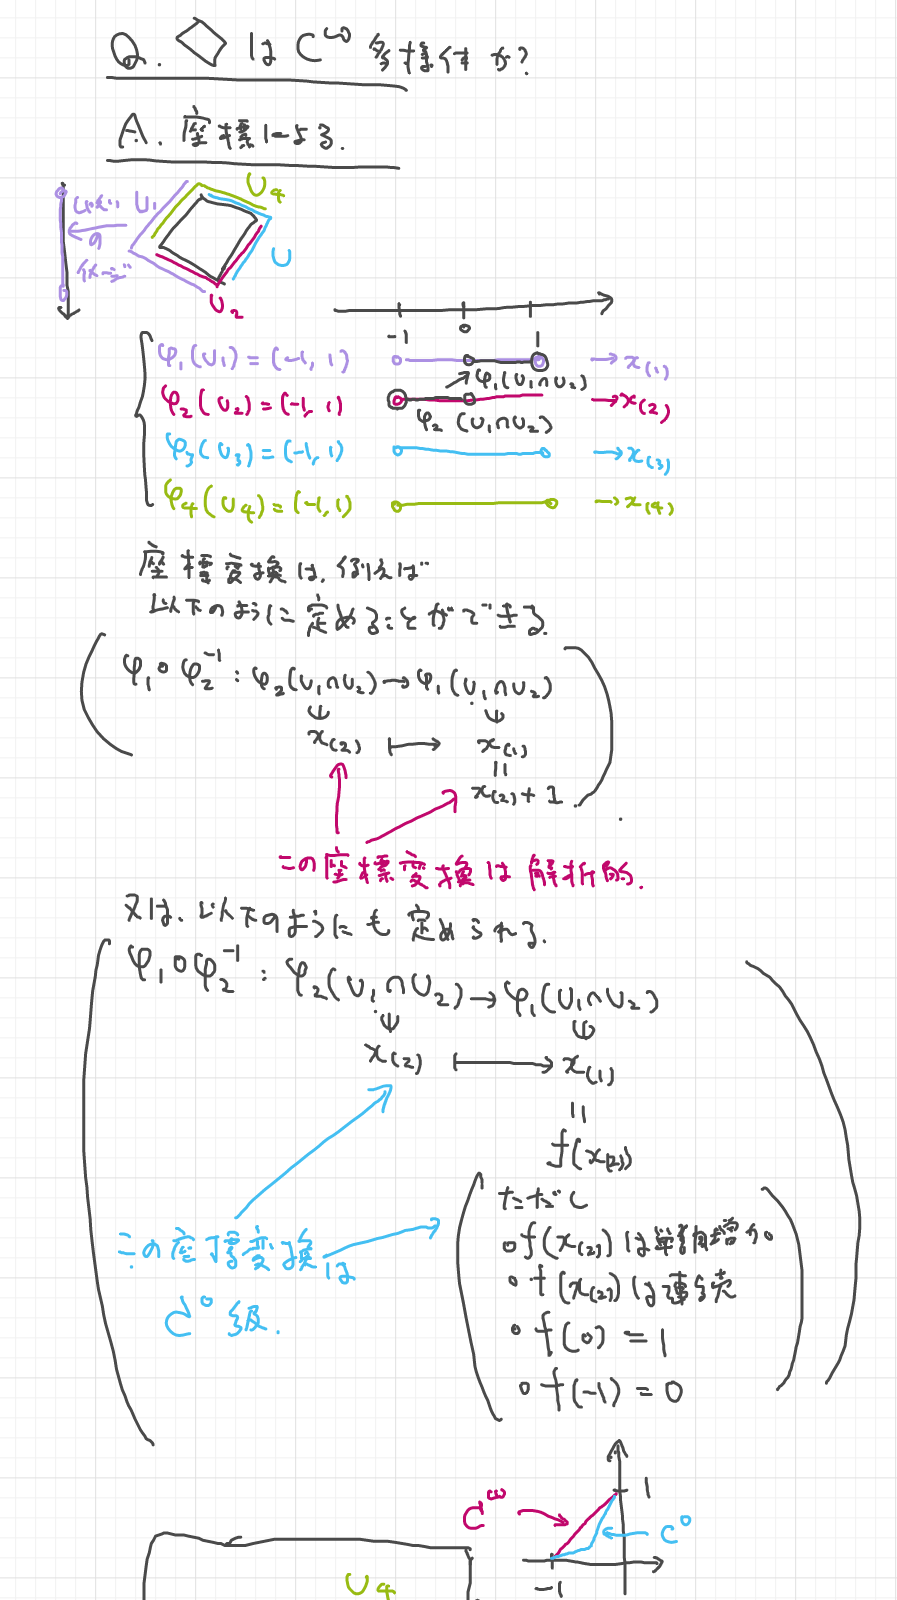 Q. ◇はC^ω多様体か?
A. 座標による.
U₄
U₁
じゃない
の
イメージ
U
U₂
-1 0 1
φ₁(U₁)=(-1, 1) →x₍₁₎
φ₁(U₁∩U₂)
φ₂(U₂)=(-1, 1) →x₍₂₎
φ₂(U₁∩U₂)
φ₃(U₃)=(-1, 1) →x₍₃₎
φ₄(U₄)=(-1, 1) →x₍₄₎
座標変換は、例えば
以下のように定めることができる.
φ₁∘φ₂⁻¹ : φ₂(U₁∩U₂)→φ₁(U₁∩U₂)
x₍₂₎ ↦ x₍₁₎
=
x₍₂₎+1.
この座標変換は解析的.
又は、以下のようにも定められる.
φ₁∘φ₂⁻¹ : φ₂(U₁∩U₂)→φ₁(U₁∩U₂)
x₍₂₎ ↦ x₍₁₎
=
f(x₍₂₎)
ただし
∘f(x₍₂₎)は単調増加
∘f(x₍₂₎)は連続
∘f(0)=1
∘f(-1)=0
この座標変換は
C⁰級.
C^ω
1
C⁰
-1
U₄